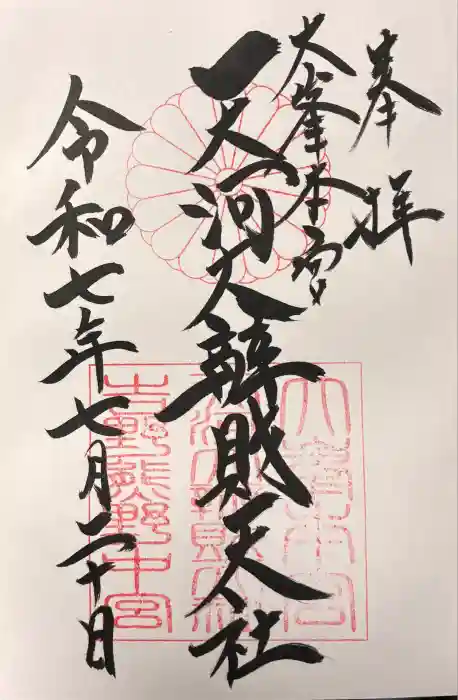 奉拝
大峯本宮
天河大辨財天社
令和七年七月二十日
大峯本宮
天河大辨財天社
吉野熊野中宮